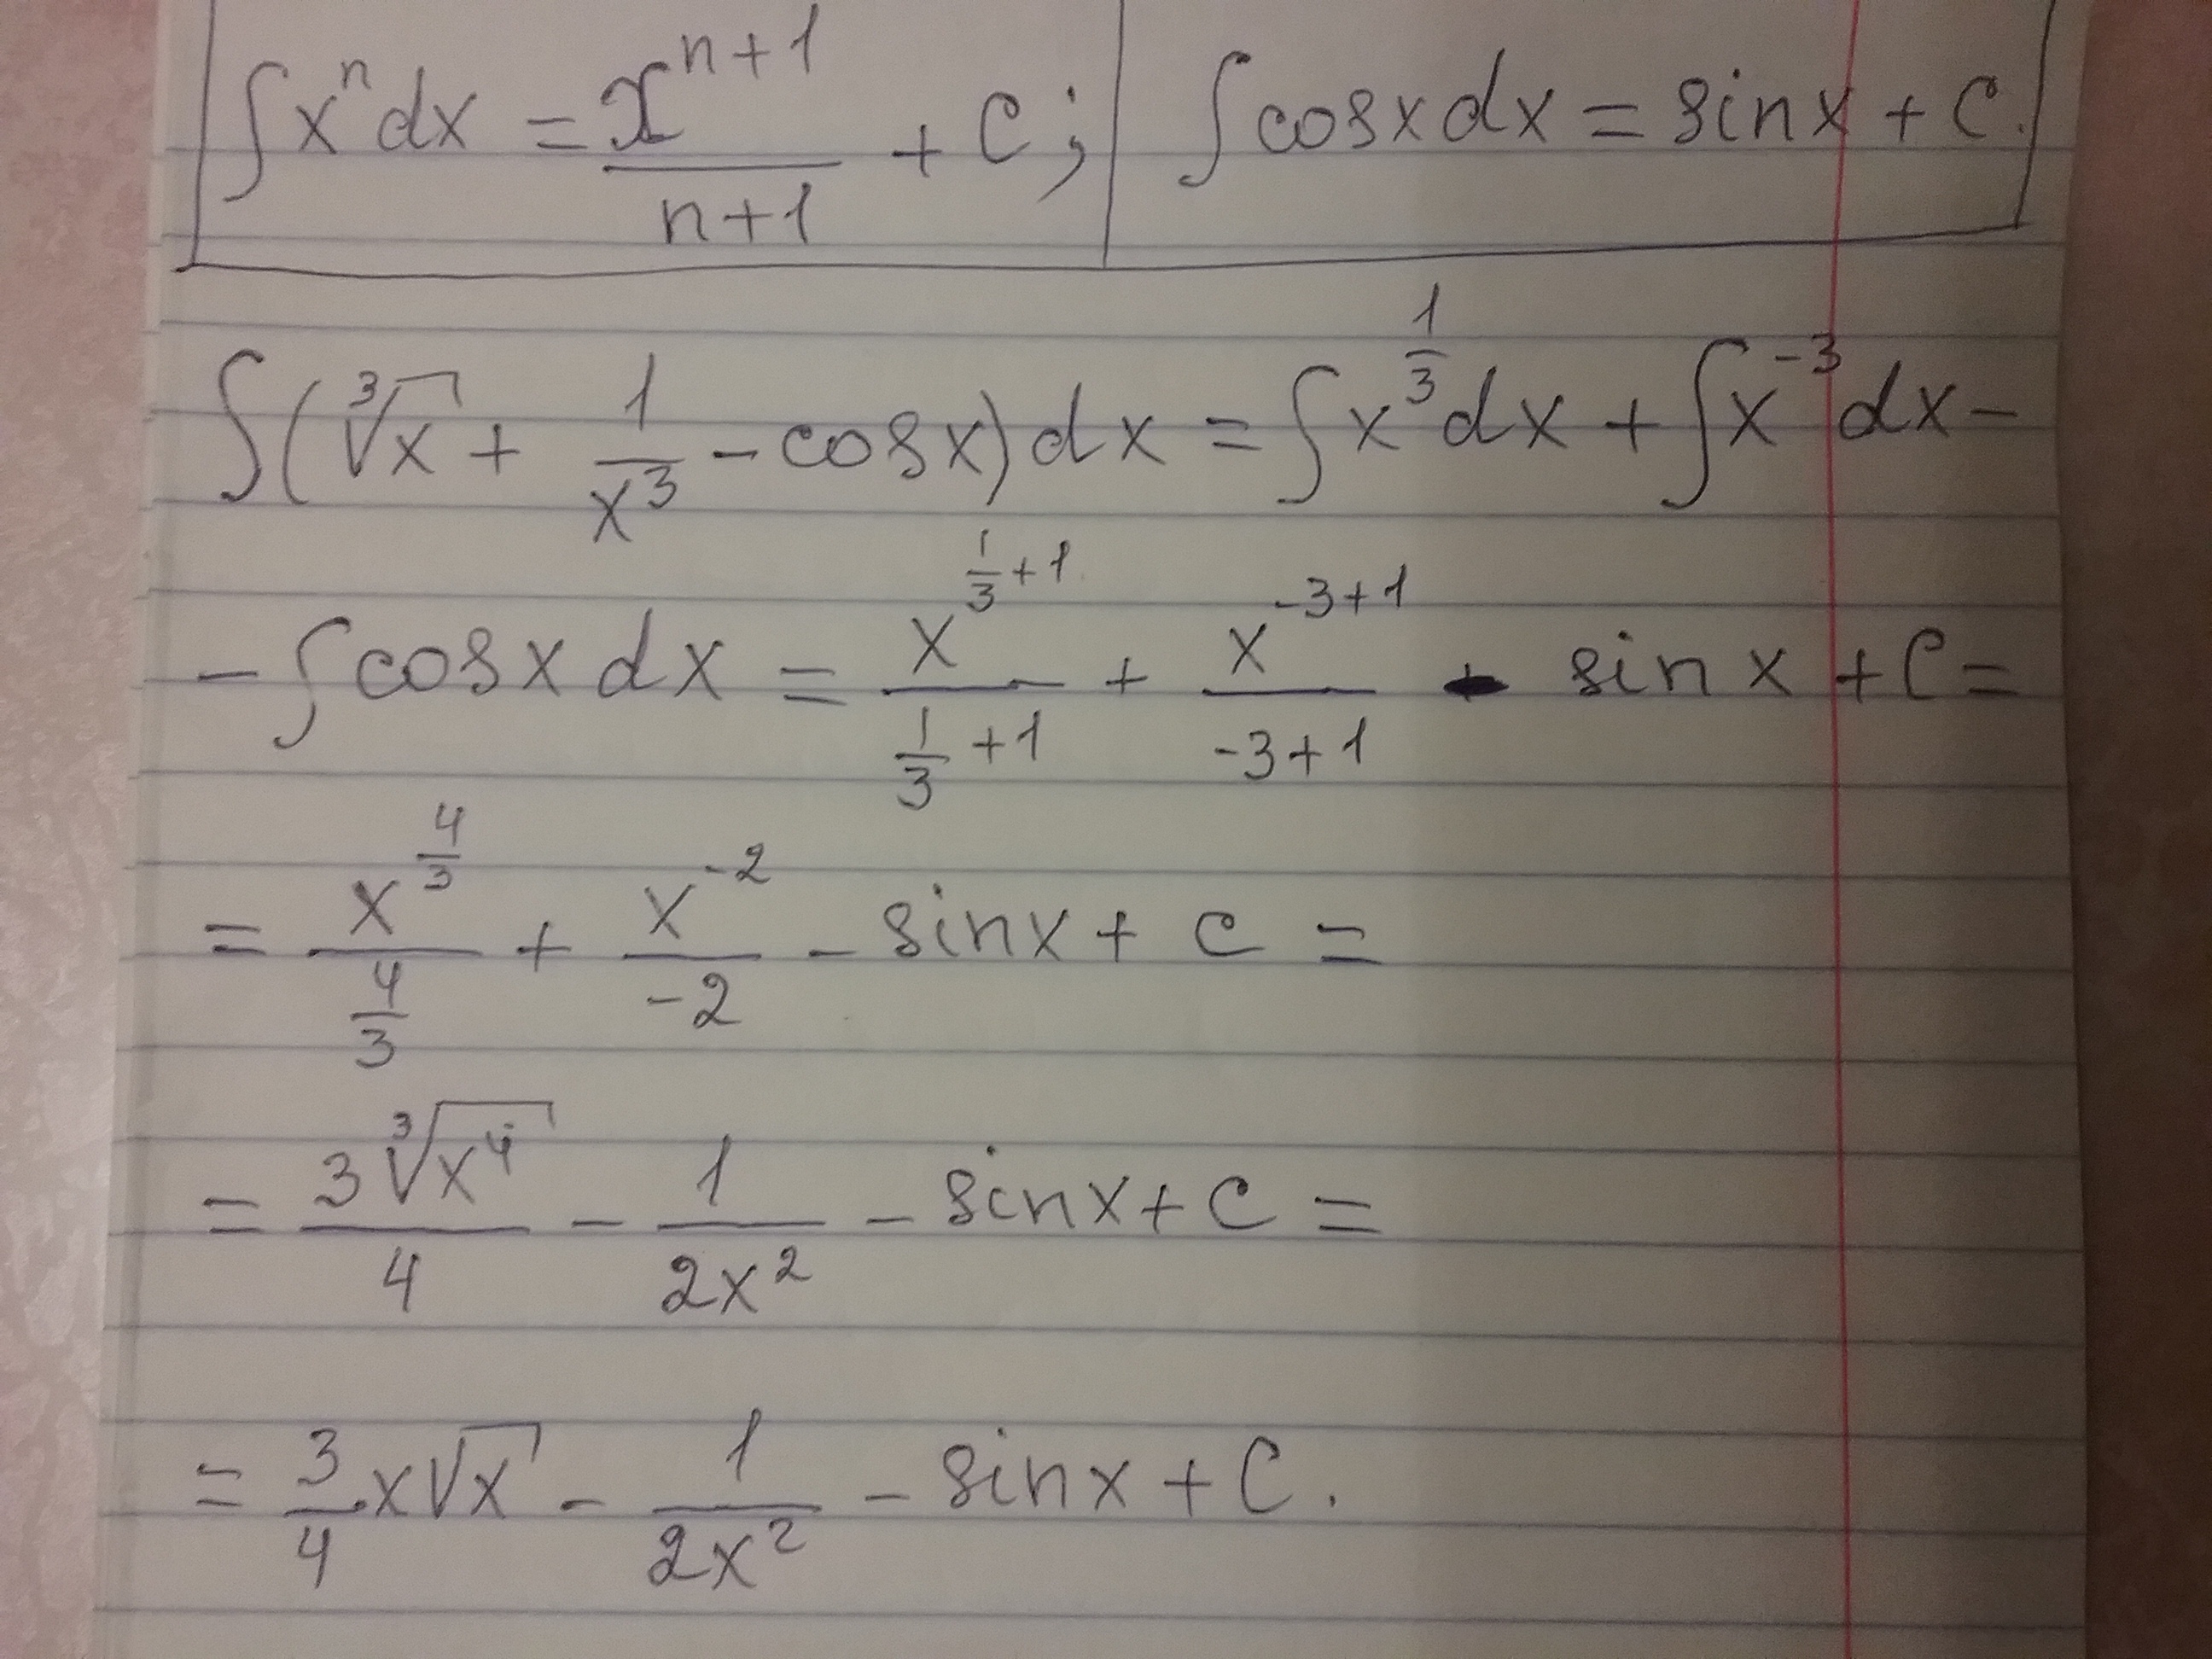 ∫xⁿdx = x^(n+1)/(n+1) + C; ∫cosxdx = sinx + C.
∫(∛x + 1/x³ - cosx)dx = ∫x^(1/3)dx + ∫x⁻³dx -
- ∫cosx dx = x^(1/3+1)/(1/3+1) + x^(-3+1)/(-3+1) - sin x + C =
= x^(4/3)/(4/3) + x⁻²/(-2) - sinx + C =
= 3∛(x⁴)/4 - 1/(2x²) - sinx + C =
= 3/4·x√x - 1/(2x²) - sinx + C.